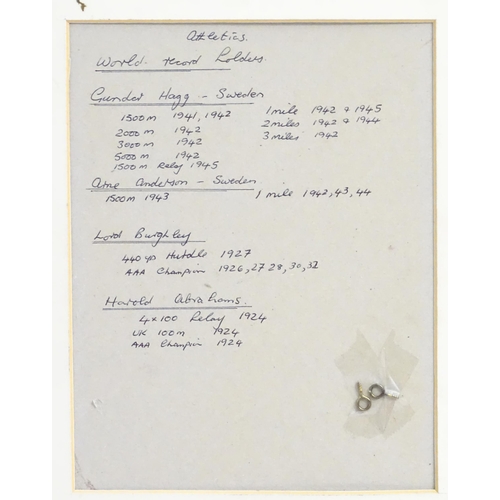 Athletics.
World record holders
Gunder Hagg - Sweden
1500m 1941, 1942 1 mile 1942 & 1945
2000m 1942 2 miles 1942 & 1944
3000m 1942 3 miles 1942
5000m 1942
1500m Relay 1945
Arne Anderson - Sweden
1500m 1943 1 mile 1942, 43, 44
Lord Burghley
440 yd Hurdle 1927
AAA Champion 1926, 27 28, 30, 32
Harold Abrahams.
4×100 Relay 1924
UK 100m 1924
AAA Champion 1924